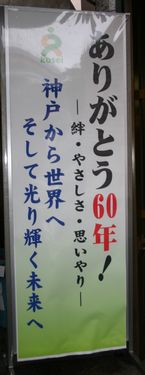 kosei
ありがとう60年!
―絆・やさしさ・思いやり―
神戸から世界へ
そして光り輝く未来へ